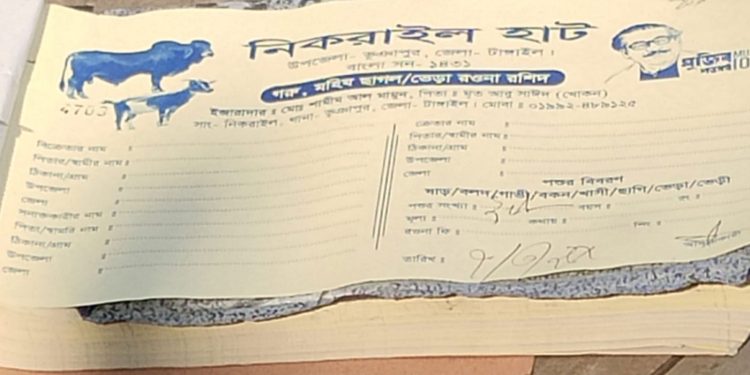 নিকরাইল হাট
উপজেলা- ভূঞাপুর, জেলা- টাঙ্গাইল।
বাংলা সন- ১৪৩১
গরু, মহিষ ছাগল/ভেড়া রওনা রশিদ
ইজারাদার ঃ মোঃ শামীম আল মামুন, পিতাঃ মৃত আবু সাঈদ (খোকন)
সাং- নিকরাইল, থানা- ভূঞাপুর, জেলা- টাঙ্গাইল। মোবাঃ ০১৯৯২-৪৮৯১২৫
4703
মুজিব
শতবর্ষ
100
বিক্রেতার নাম ঃ
পিতার/স্বামীর নাম ঃ
ঠিকানা/গ্রাম ঃ
উপজেলা ঃ
জেলা ঃ
সনাক্তকারীর নাম ঃ
পিতা/স্বামীর নাম ঃ
ঠিকানা/গ্রাম ঃ
উপজেলা ঃ
জেলা ঃ
ক্রেতার নাম ঃ
পিতার/স্বামীর নাম ঃ
ঠিকানা/গ্রাম ঃ
উপজেলা ঃ
জেলা ঃ
পশুর বিবরণ
ষাড়/বলদ/গাভী/বকন/খাসী/ছাগি/ভেড়া/ভেড়ী
পশুর সংখ্যা ঃ বয়স ঃ রং ঃ
মূল্য ঃ কথায় ঃ
রওনা ফি ঃ লিং ঃ
তারিখ ঃ